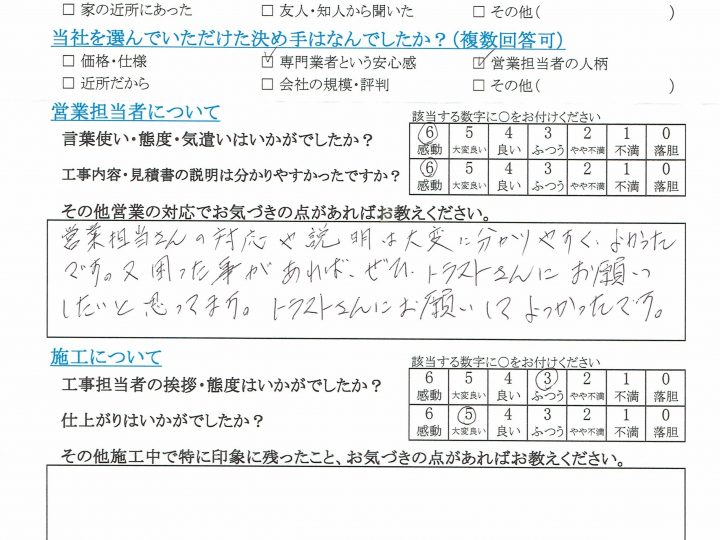 □ 家の近所にあった □ 友人・知人から聞いた □ その他( )
当社を選んでいただけた決め手はなんでしたか？（複数回答可）
□ 価格・仕様 ☑ 専門業者という安心感 ☑ 営業担当者の人柄
□ 近所だから □ 会社の規模・評判 □ その他( )
営業担当者について 該当する数字に○をお付けください
言葉使い・態度・気遣いはいかがでしたか？ 6 5 4 3 2 1 0
感動 大変良い 良い ふつう やや不満 不満 落胆
工事内容・見積書の説明は分かりやすかったですか？ 6 5 4 3 2 1 0
感動 大変良い 良い ふつう やや不満 不満 落胆
その他営業の対応でお気づきの点があればお教えください。
営業担当さんの対応や説明は大変に分かりやすく、よかった
です。又困った事があれば、ぜひ、トラストさんにお願い
したいと思ってます。トラストさんにお願いしてよっかったです。
施工について 該当する数字に○をお付けください
工事担当者の挨拶・態度はいかがでしたか？ 6 5 4 3 2 1 0
感動 大変良い 良い ふつう やや不満 不満 落胆
仕上がりはいかがでしたか？ 6 5 4 3 2 1 0
感動 大変良い 良い ふつう やや不満 不満 落胆
その他施工中で特に印象に残ったこと、お気づきの点があればお教えください。